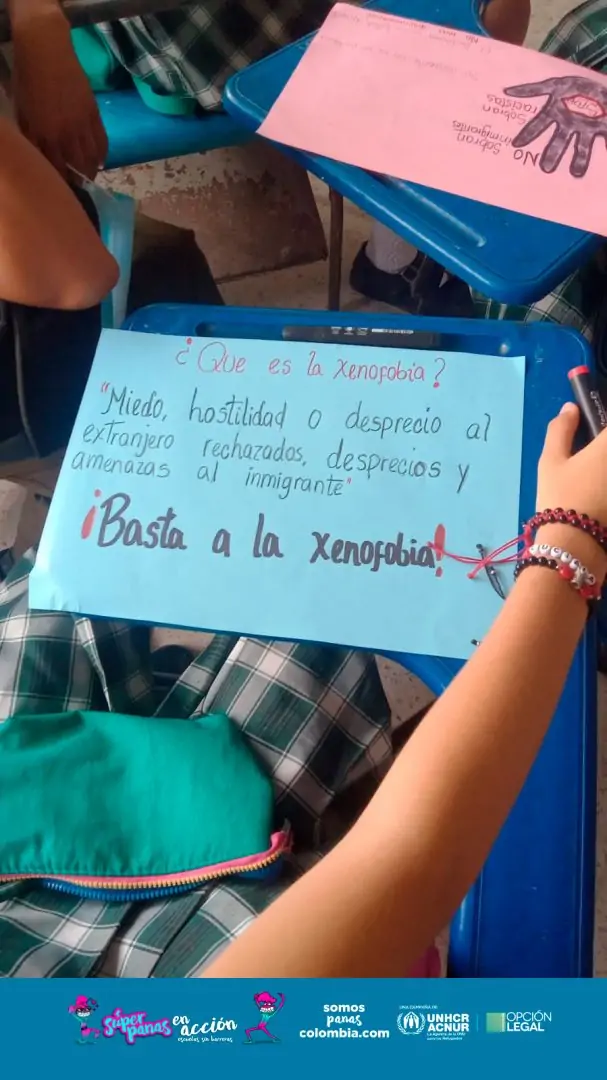 ¿Que es la xenofobia?
"Miedo, hostilidad o desprecio al
extranjero rechazados, desprecios y
amenazas al inmigrante"
¡Basta a la xenofobia!
NO
Sobran
inmigrantes
Sobran
racistas
Stop
Súper
panas
en
acción
escuelas sin barreras
somos
panas
colombia.com
UNA CAMPAÑA DE
UNHCR
ACNUR
La Agencia de la ONU
para los Refugiados
OPCIÓN
LEGAL